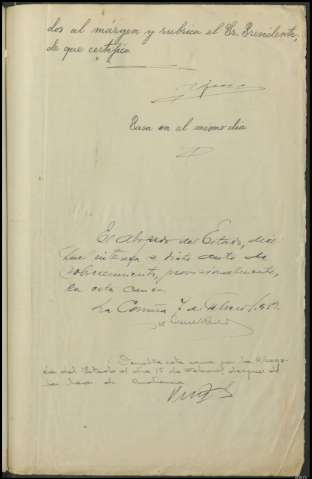 dos al márgen y rubrica el Sr. Presidente,
de que certifico
Pasa en el mismo dia
El Abogado del Estado, dice
que interesa se dicte auto de
sobreseimiento, provisionalmente,
en esta causa
La Coruña 7 de Febrero
Devuelta esta causa por la Aboga-
cia del Estado el dia 15 de Febrero, despues de
las horas de Audiencia